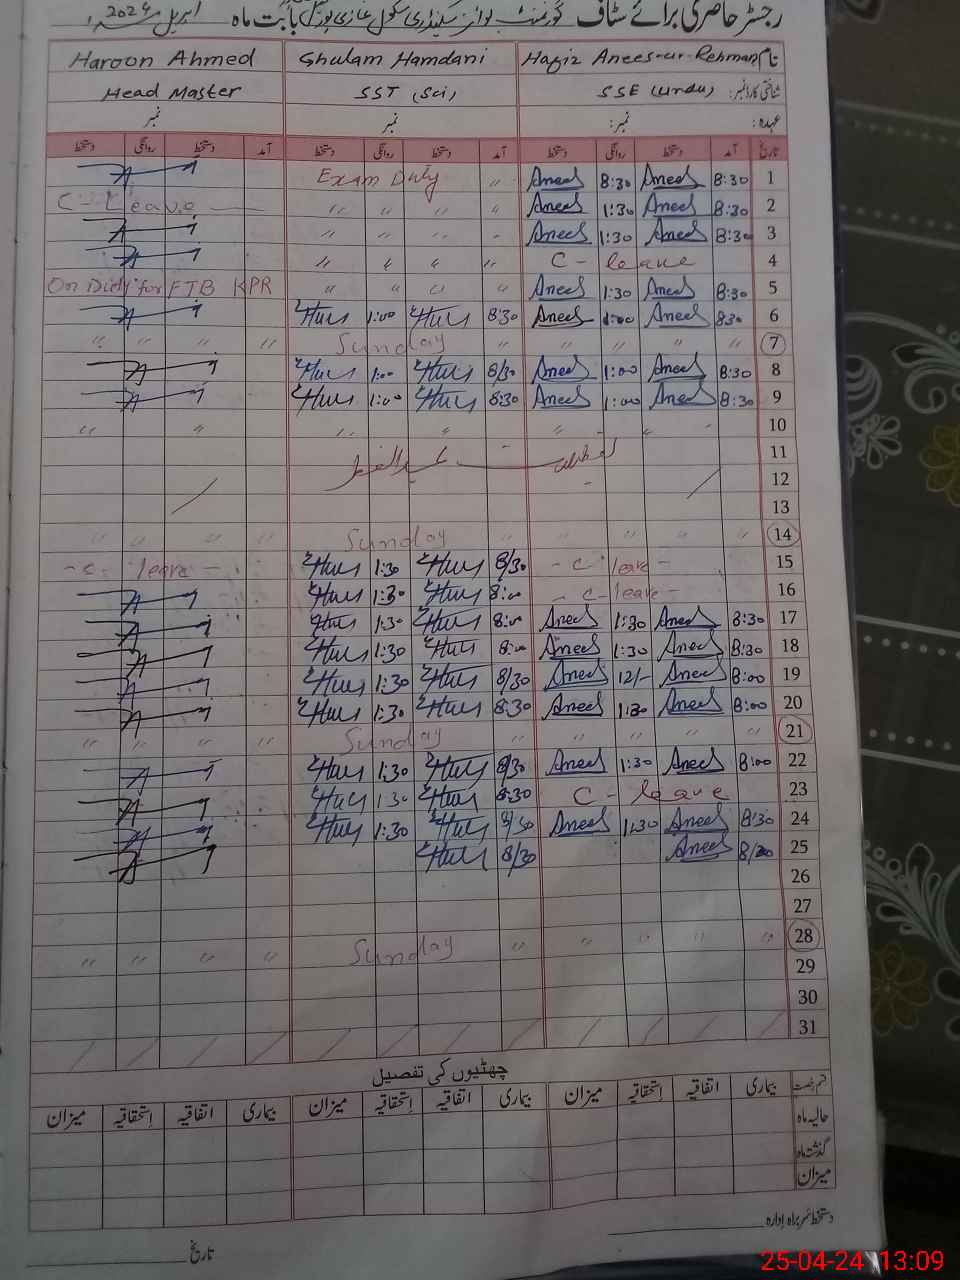 رجسٹر حاضری برائے سٹاف گورنمنٹ بوائز سیکنڈری سکول غازی پور بابت ماہ اپریل 2024ء
Haroon Ahmed Ghulam Hamdani Hafiz Anees-ur-Rehman نام
Head Master SST (Sci) SSE (Urdu) شناختی کارڈ نمبر:
نمبر نمبر نمبر: عہدہ:
دستخط روانگی دستخط آمد دستخط روانگی دستخط آمد دستخط روانگی دستخط آمد تاریخ
Exam Duty " Anees 8:30 Anees 8:30 1
C - Leave " " " " Anees 1:30 Anees 8:30 2
" " " " Anees 1:30 Anees 8:30 3
" " " " C - leave 4
On Duty for FTB KPR " " " " Anees 1:30 Anees 8:30 5
1:00 8:30 Anees 1:00 Anees 830 6
" " " " Sunday " " " " " 7
1:00 8/30 Anees 1:00 Anees 8:30 8
1:00 8:30 Anees 1:00 Anees 8:30 9
" " " " " " " 10
تعطیلات عید الفطر 11
12
13
" " " " Sunday " " " " " 14
- C - leave - 1:30 8/30 - C leave - 15
1:30 8:00 - C - leave - 16
1:30 8:00 Anees 1:30 Anees 8:30 17
1:30 8:00 Anees 1:30 Anees 8:30 18
1:30 8/30 Anees 12/- Anees 8:00 19
1:30 8:30 Anees 1:30 Anees 8:00 20
" " " " Sunday " " " " " 21
1:30 8/30 Anees 1:30 Anees 8:00 22
1:30 8:30 C - leave 23
1:30 8/30 Anees 1:30 Anees 8:30 24
8/30 Anees 8/30 25
26
27
" " " " Sunday " " " " " 28
29
30
31
چھٹیوں کی تفصیل
میزان استحقاقیہ اتفاقیہ بیماری میزان استحقاقیہ اتفاقیہ بیماری میزان استحقاقیہ اتفاقیہ بیماری قسم رخصت
حالیہ ماہ
گذشتہ ماہ
میزان
دستخط سربراہ ادارہ
تاریخ
25-04-24 13:09